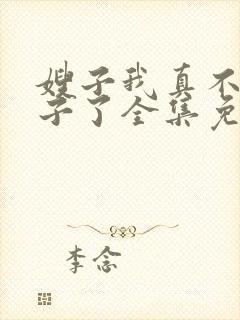 嫂子我真不
子了全集免
李念